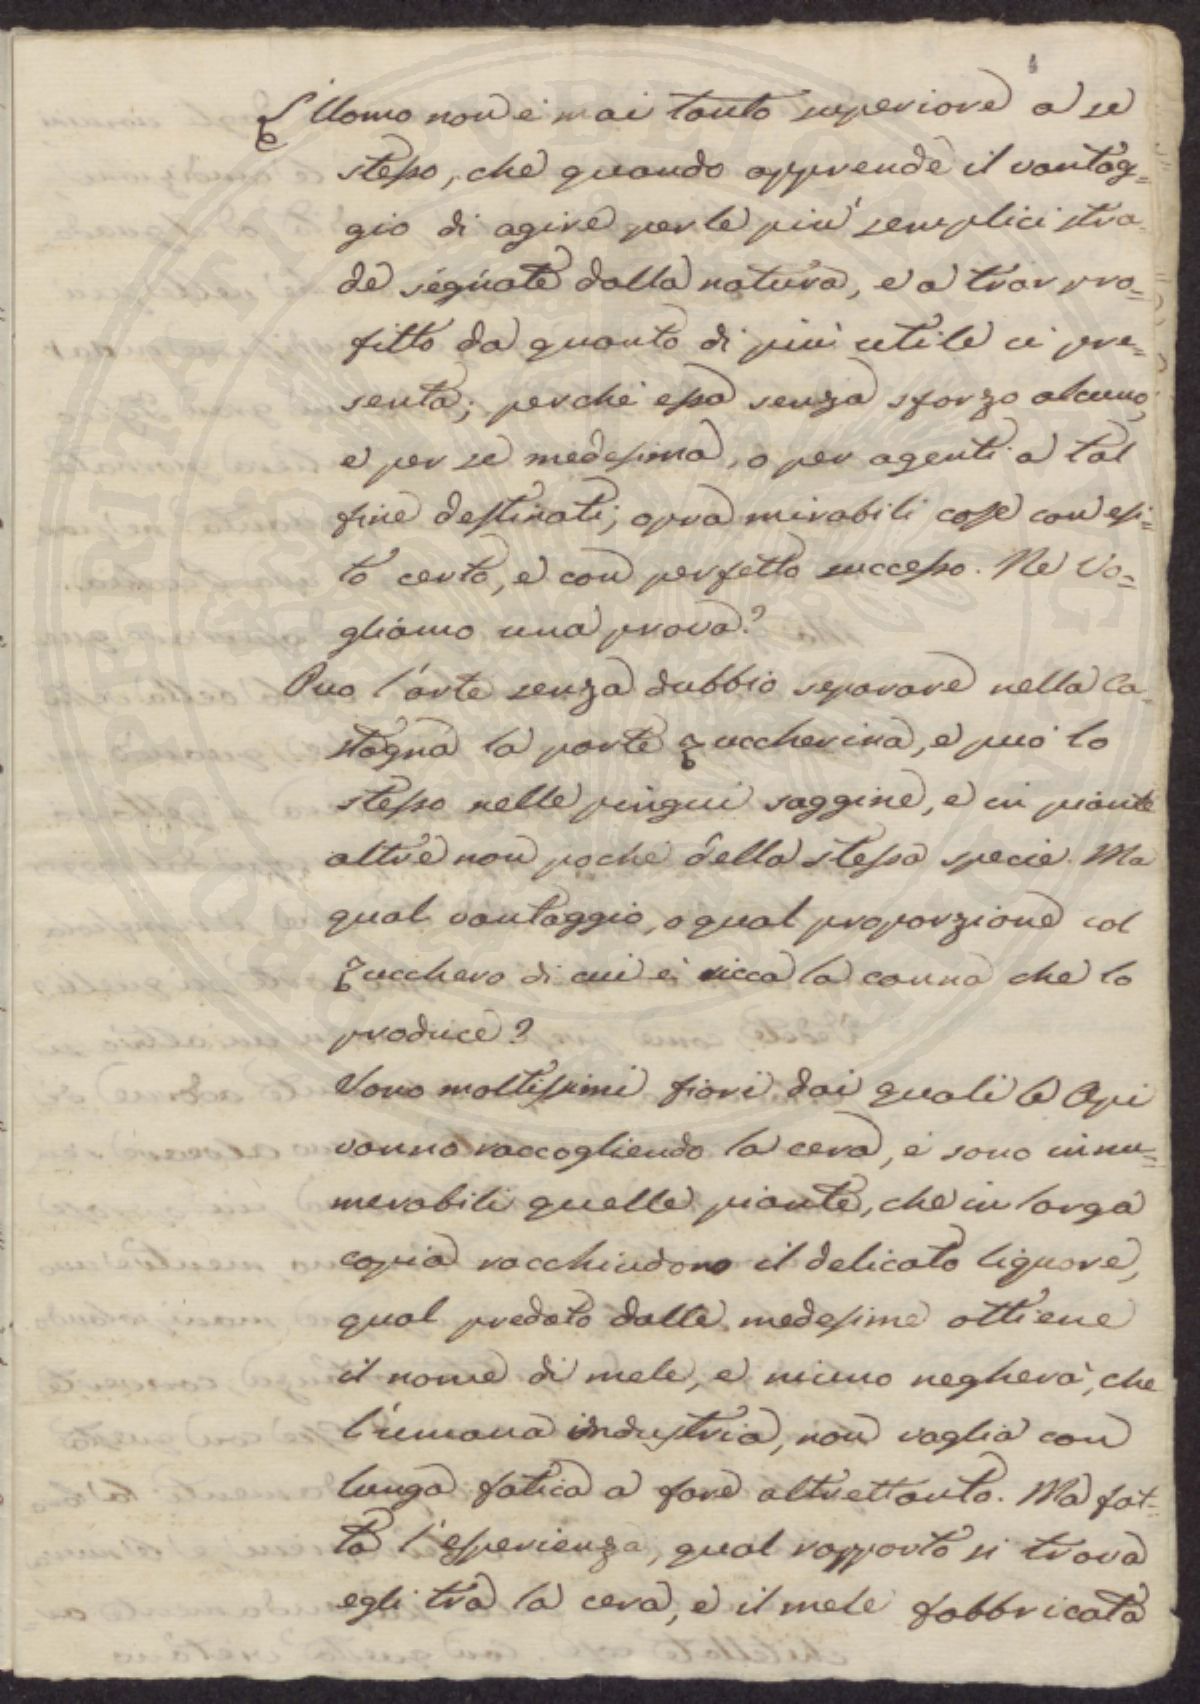 L'Uomo non è mai tanto superiore a se
stesso, che quando apprende il vantag=
gio di agire per le più semplici stra=
de segnate dalla natura, e a trar pro=
fitto da quanto di più utile ci pre=
senta; perchè essa senza sforzo alcuno,
e per se medesima, o per agenti a tal
fine destinati; opra mirabili cose con esi=
to certo, e con perfetto successo. Ne vo=
gliamo una prova?
Puo l'arte senza dubbio separare nella Ca=
stagna la parte zuccherina, e può lo
stesso nelle pingui saggine, e in piante
altre non poche della stessa specie. Ma
qual vantaggio, o qual proporzione col
zucchero di cui è ricca la canna che lo
produce?
Sono moltissimi fiori dai quali le Api
vanno raccogliendo la cera, e sono innu=
merabili quelle piante, che in larga
copia racchiudono il delicato liquore,
qual predato dalle medesime ottiene
il nome di mele, e niuno negherà, che
l'umana industria, non vaglia con
lunga fatica a fare altrettanto. Ma fat=
ta l'esperienza, qual rapporto si trova
egli tra la cera, e il mele fabbricata